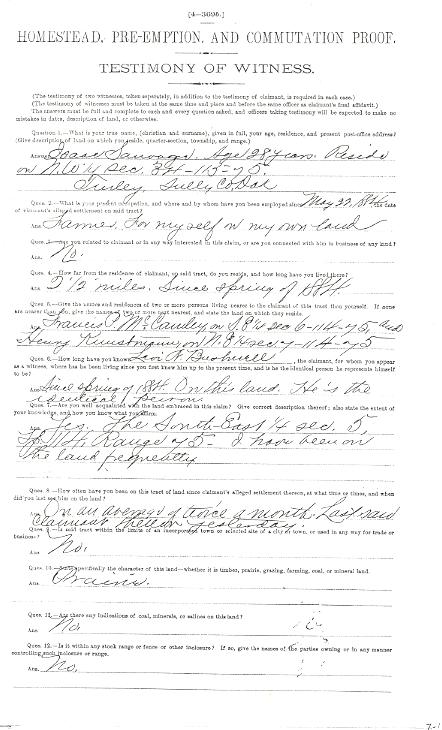 [4—369b.]
HOMESTEAD, PRE-EMPTION, AND COMMUTATION PROOF.
TESTIMONY OF WITNESS.
(The testimony of two witnesses, taken separately, in addition to the testimony of claimant, is required in each case.)
(The testimony of witnesses must be taken at the same time and place and before the same officer as claimant's final affidavit.)
The answers must be full and complete to each and every question asked, and officers taking testimony will be expected to make no
mistakes in dates, description of land, or otherwise.
Question 1.—What is your true name, (christian and surname), given in full, your age, residence, and present post-office address?
(Give description of land on which you reside, quarter-section, township, and range.)
Answer Isaac Age 28 years. Reside
on N.W ¼ sec. 34-115-75.
Sully Co Dak
Ques. 2.—What is your present occupation, and where and by whom have you been employed since May 22, 1884, the date
of claimant's alleged settlement on said tract?
Ans. Farmer. For myself on my own land
Ques. 3.—Are you related to claimant or in any way interested in this claim, or are you connected with him in business of any land?
Ans. No.
Ques. 4.—How far from the residence of claimant, on said tract, do you reside, and how long have you lived there?
Ans. 2 ½ miles. Since spring of 1884
Ques. 5.—Give the names and residences of two or more persons living nearest to the claimant of this tract than yourself. If none
are nearer than you, give the names of two or more next nearest, and state the land on which they reside.
Ans. Francis P. McCauley, on S.E ¼ sec 6-114-75, and
Henry on N.E ¼ sec 7-114-75
Ques. 6.—How long have you known Levi F. Bushnell, the claimant, for whom you appear
as a witness, where has he been living since you first knew him up to the present time, and is he the identical person he represents himself
to be?
Ans. Since spring of 1884. On this land. He's the
identical person.
Ques. 7.—Are you well acquainted with the land embraced in this claim? Give correct description thereof; also state the extent of
your knowledge, and how you know what you affirm.
Ans. Yes. The South-East ¼ sec. 5.
Tp 114. Range 75- I have been on
the land frequently
Ques. 8.—How often have you been on this tract of land since claimant's alleged settlement thereon, at what time or times, and when
did you last see him on the land?
Ans. On an average of twice a month. Last said
claimant thereon yesterday.
Ques. 9.—Is said tract within the limits of an incorporated town or selected site of a city or town, or used in any way for trade or
business?
Ans. No.
Ques. 10.—State specifically the character of this land—whether it is timber, prairie, grazing, farming, coal, or mineral land.
Ans. Prairie.
Ques. 11.—Are there any indications of coal, minerals, or salines on this land?
Ans. No
Ques. 12.—Is it within any stock range or fence or other inclosure? If so, give the names of the parties owning or in any manner
controlling such inclosure or range.
Ans. No.